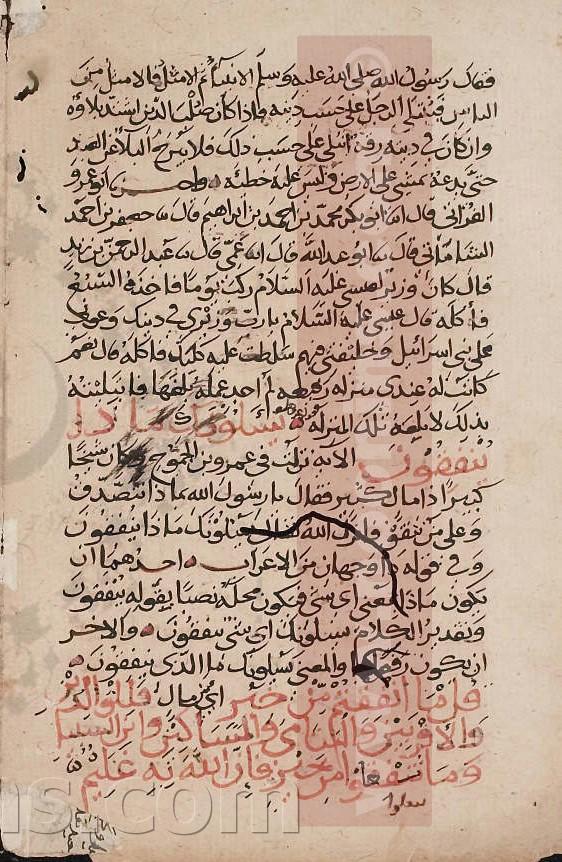 فقال رسول الله صلى الله عليه وسلم الانبياء ثم الامثل فالامثل من
الناس فيبتلى الرجل على حسب دينه فاذا كان صلب الدين اشتد بلاؤه
وان كان في دينه رقة ابتلي على حسب ذلك فلا يبرح البلاء عن العبد
حتى يدعه يمشي على الارض وليس عليه خطيئة واخبرنا ابو عمرو
الفراتي قال ابو بكر محمد بن احمد بن ابراهيم قال جعفر بن احمد
قال ابو عبد الله قال عمي قال عبد الرحمن بن زيد
قال كان وزير لعيسى عليه السلام ركب يوما فاخذه السبع
فأكله قال عيسى عليه السلام يا رب وزيري في دينك وعوني
على بني اسرائيل وخليفتي فيهم سلطت عليه كلبك فاكله قال نعم
كانت له عندي منزلة رفيعة لم اجد عمله بلغها فابتليته
بذلك لابلغه تلك المنزلة يسئلونك ماذا
ينفقون الآية نزلت في عمرو بن الجموح وكان شيخا
كبيرا ذا مال كثير فقال يا رسول الله بماذا نتصدق
وعلى من ننفق فانزل الله تعالى يسئلونك ماذا ينفقون
وفي قوله ماذا وجهان من الاعراب احدهما ان
يكون ماذا بمعنى اي شي فيكون محله نصبا بقوله ينفقون
وتقدير الكلام يسئلونك اي شي ينفقون والاخر
ان يكون رفعا والمعنى يسئلونك ما الذي ينفقون
قل ما انفقتم من خير اي من مال فللوالدين
والاقربين واليتامى والمساكين وابن السبيل
وما تفعلوا من خير فان الله به عليم